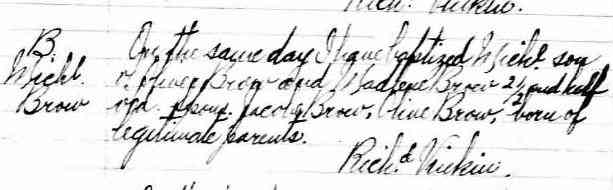 Rich. Vickin.
B.
Michl.
Brow
On the same day I have baptized Michl. son
of Oliver Brow and Madlene Brow 2 1/2 and half
old. Spons. Jacob Brow, Olive Brow, born of
legitimate parents.
Rich.d Vickin.